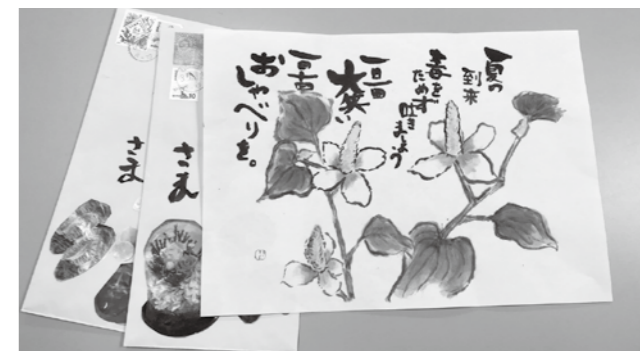 夏の
到来
春を
ためず吐きましょう
一日一回
大笑い
一日一
おしゃべりを。
さま
さま